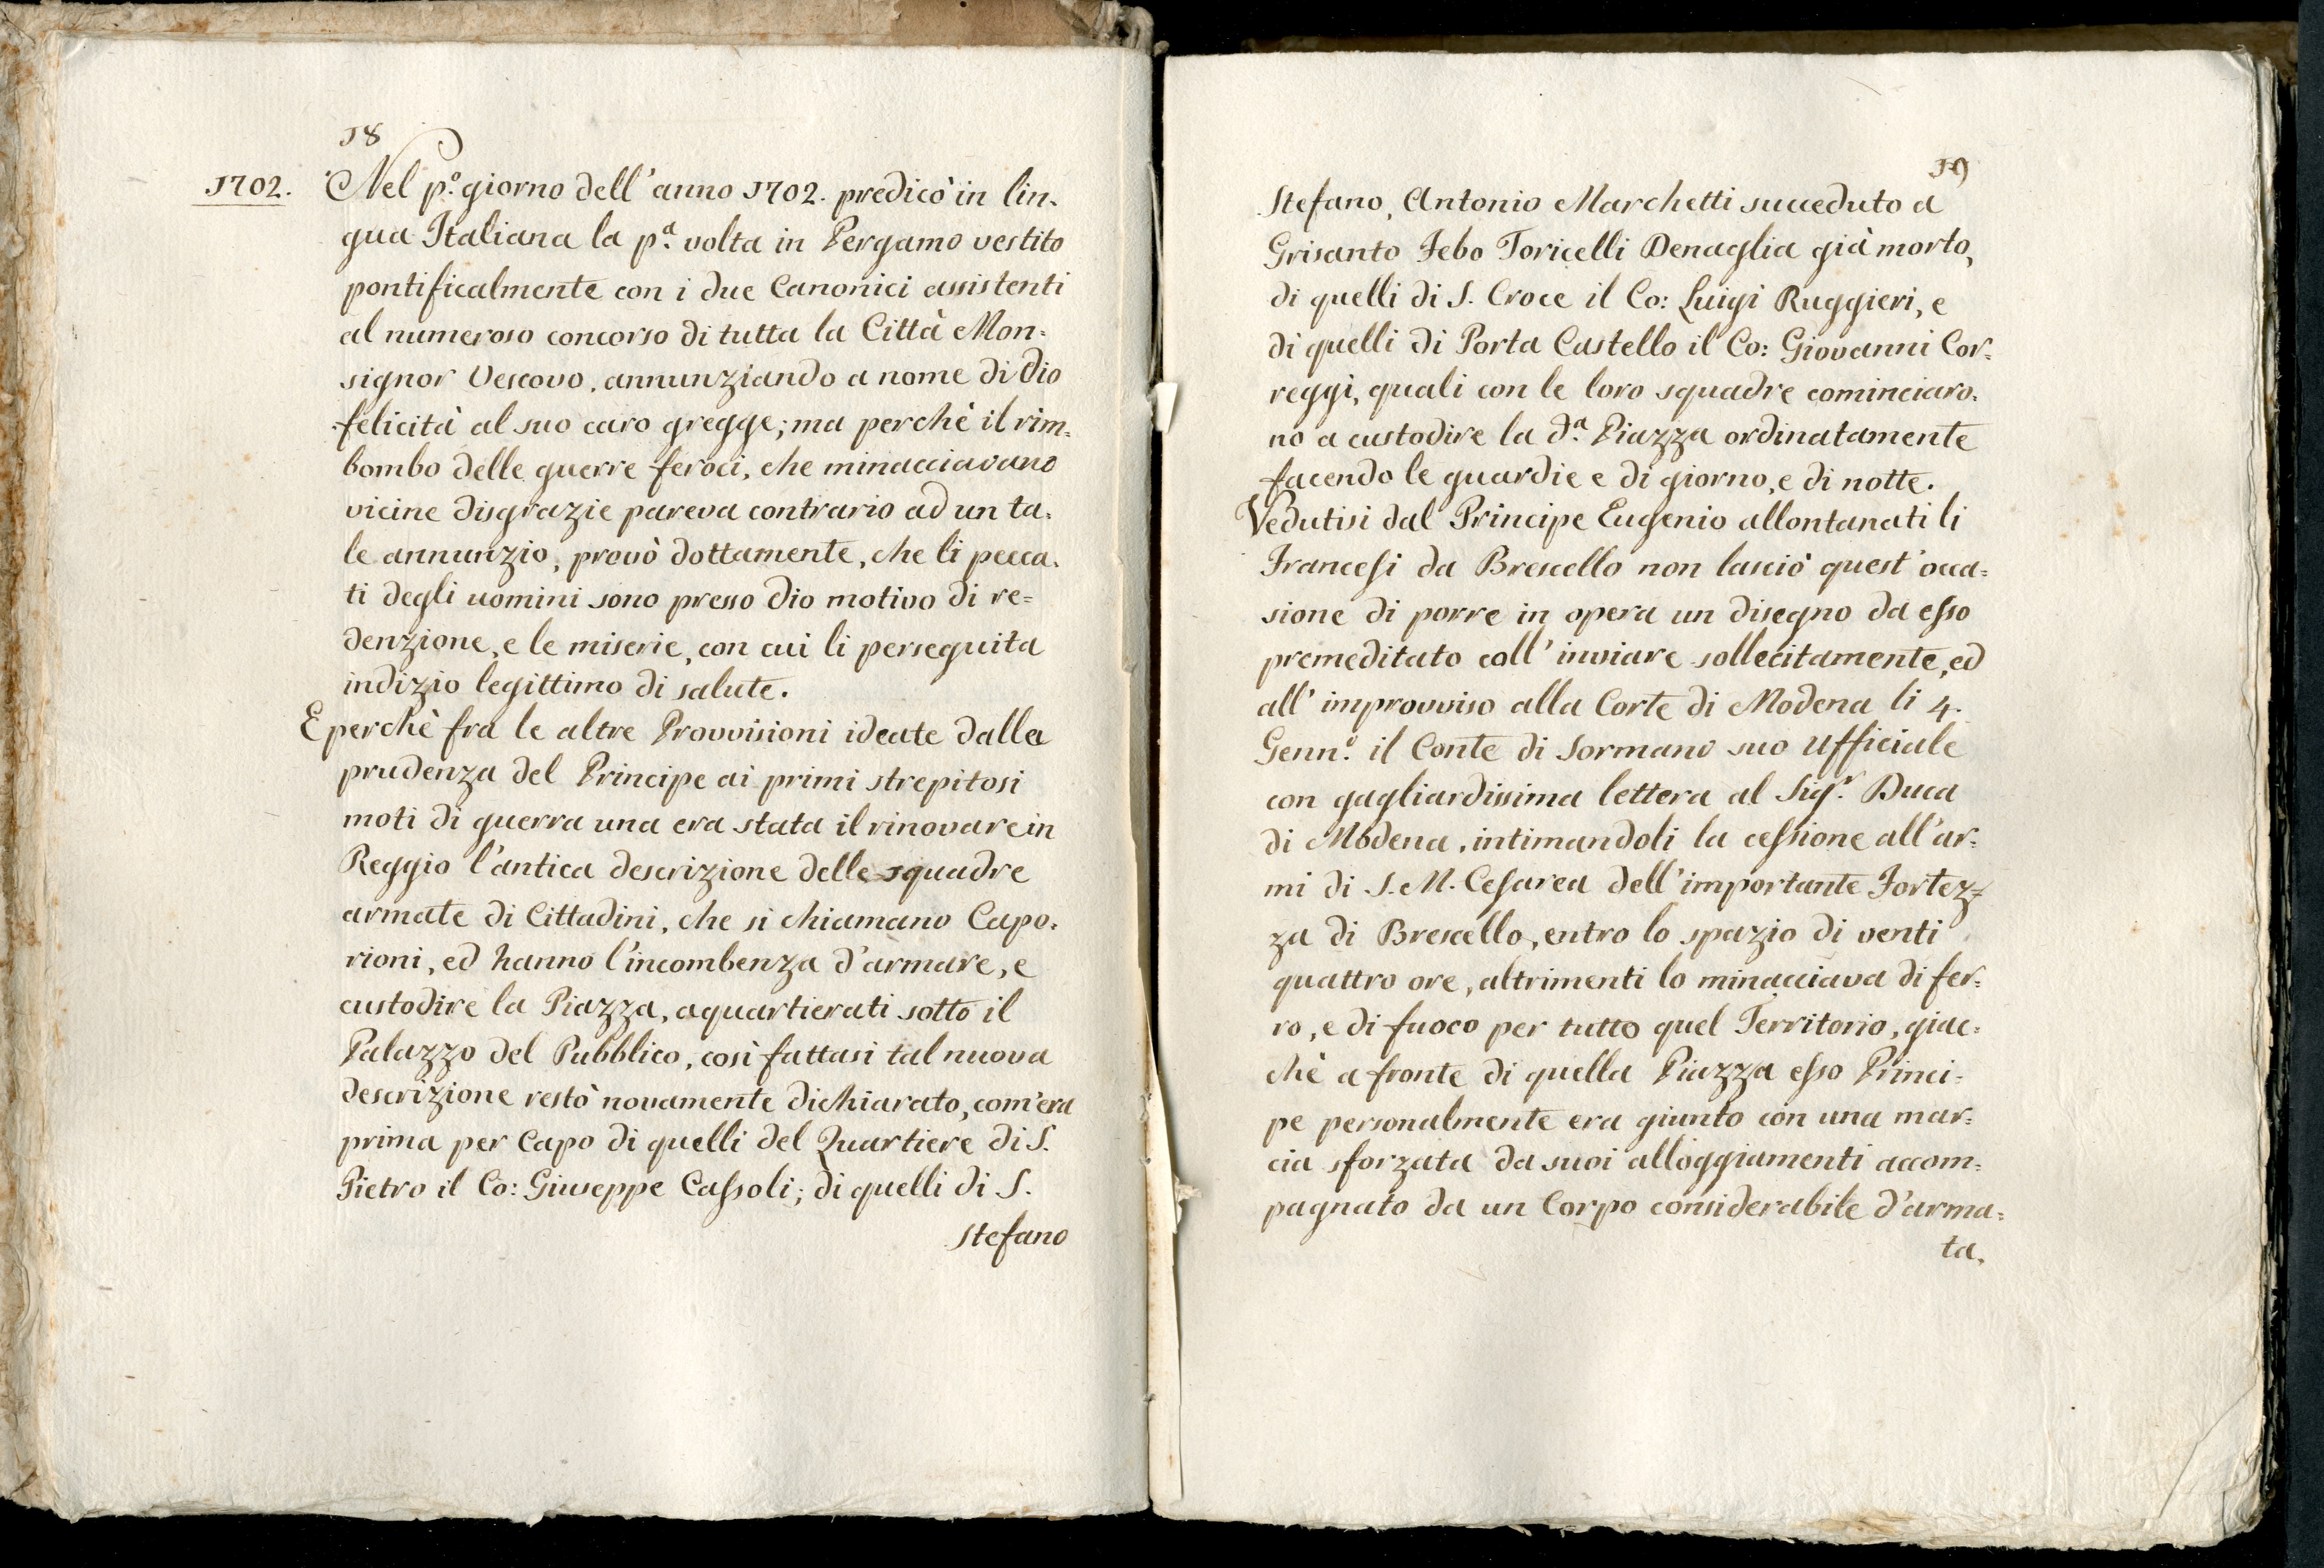 18
1702. Nel p.º giorno dell'anno 1702. predicò in lin.
gua Italiana la p.ª volta in Pergamo vestito
pontificalmente con i due Canonici assistenti
al numeroso concorso di tutta la Città Mon=
signor Vescovo, annunziando a nome di Dio
felicità al suo caro gregge; ma perchè il rim=
bombo delle guerre feroci, che minacciavano
vicine disgrazie pareva contrario ad un ta.
le annunzio, provò dottamente, che li pecca.
ti degli uomini sono presso Dio motivo di re=
denzione, e le miserie, con cui li perseguita
indizio legittimo di salute.
E perchè fra le altre Provvisioni ideate dalla
prudenza del Principe ai primi strepitosi
moti di guerra una era stata il rinovare in
Reggio l'antica descrizione delle squadre
armate di Cittadini, che si chiamano Capo.
rioni, ed hanno l'incombenza d'armare, e
custodire la Piazza, aquartierati sotto il
Palazzo del Pubblico, così fattasi tal nuova
descrizione restò novamente dichiarato, com'era
prima per Capo di quelli del Quartiere di S.
Pietro il Co: Giuseppe Cassoli; di quelli di S.
Stefano
19
Stefano, Antonio Marchetti succeduto a
Grisanto Febo Toricelli Denaglia già morto,
di quelli di S. Croce il Co: Luigi Ruggieri, e
di quelli di Porta Castello il Co: Giovanni Cor=
reggi, quali con le loro squadre cominciaro.
no a custodire la d.ª Piazza ordinatamente
facendo le guardie e di giorno, e di notte.
Vedutisi dal Principe Eugenio allontanati li
Francesi da Brescello non lasciò quest'occa=
sione di porre in opera un disegno da esso
premeditato coll'inviare sollecitamente, ed
all'improvviso alla Corte di Modena li 4.
Genn.º il Conte di Sormano suo Ufficiale
con gagliardissima lettera al Sig.r Duca
di Modena, intimandoli la cessione all'ar=
mi di S. M. Cesarea dell'importante Fortez=
za di Brescello, entro lo spazio di venti
quattro ore, altrimenti lo minacciava di fer=
ro, e di fuoco per tutto quel Territorio, giac=
chè a fronte di quella Piazza esso Princi=
pe personalmente era giunto con una mar=
cia sforzata da suoi alloggiamenti accom=
pagnato da un Corpo considerabile d'arma=
ta,